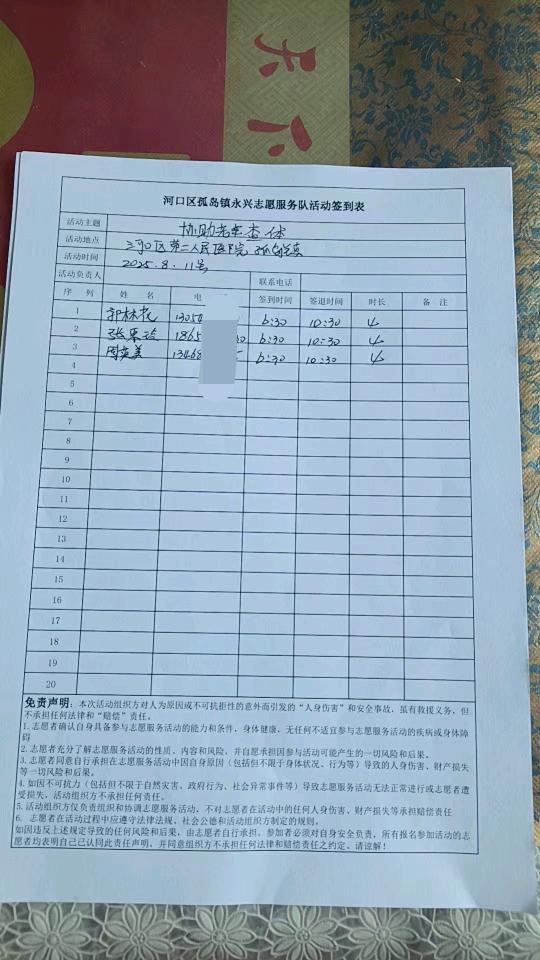 天下
河口区孤岛镇永兴志愿服务队活动签到表
活动主题 协助老年查体
活动地点 河口区第二人民医院
活动时间 2025.8.11号
活动负责人 联系电话
序 列 姓 名 电 签到时间 签退时间 时长 备 注
1 郭林花 1305 6:30 10:30 4
2 张 1865 6:30 10:30 4
3 周英美 13468 6:30 10:30 4
4
5
6
7
8
9
10
11
12
13
14
15
16
17
18
19
20
免责声明：本次活动组织方对人为原因或不可抗拒性的意外而引发的“人身伤害”和安全事故，虽有救援义务，但
不承担任何法律和“赔偿”责任。
1. 志愿者确认自身具备参与志愿服务活动的能力和条件，身体健康，无任何不适宜参与志愿服务活动的疾病或身体障
碍
2. 志愿者充分了解志愿服务活动的性质、内容和风险，并自愿承担因参与活动可能产生的一切风险和后果。
3. 志愿者同意自行承担在志愿服务活动中因自身原因（包括但不限于身体状况、行为等）导致的人身伤害、财产损失
等一切风险和后果。
4. 如因不可抗力（包括但不限于自然灾害、政府行为、社会异常事件等）导致志愿服务活动无法正常进行或志愿者遭
受损失，活动组织方不承担任何责任。
5. 活动组织方仅负责组织和协调志愿服务活动，不对志愿者在活动中的任何人身伤害、财产损失等承担赔偿责任
6. 志愿者在活动过程中应遵守法律法规、社会公德和活动组织方制定的规则。
如因违反上述规定导致的任何风险和后果，由志愿者自行承担。参加者必须对自身安全负责，所有报名参加活动的志
愿者均表明自己已认同此责任声明，并同意组织方不承担任何法律和赔偿责任之约定。请谅解！